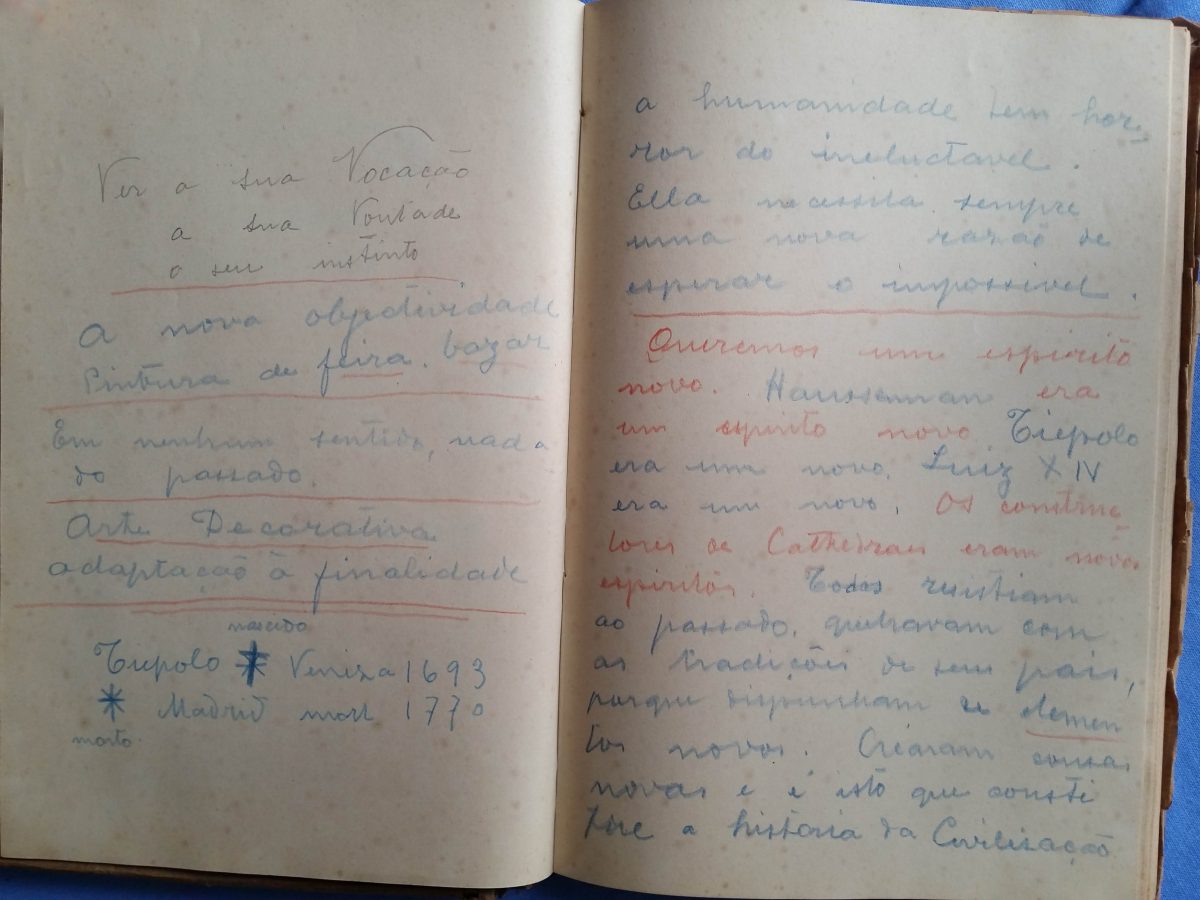 Ver a sua Vocação
a sua Vontade
o seu instinto
A nova objetividade
Pintura de feira. bazar
Em nenhum sentido, nada
do passado.
Arte Decorativa
adaptação à finalidade
nascido
Tiepolo * Veneza 1693
* Madrid mort 1770
morto.
a humanidade tem hor-
ror do ineluctavel.
Ella necessita sempre
uma nova razaõ de
esperar o impossivel.
Queremos um espirito
novo. Hausseman era
um espirito novo Tiepolo
era um novo. Luiz XIV
era um novo. Os constru-
tores de Cathedraes eram novos
espiritos. Todos resistiam
ao passado, quebravam com
as tradições de seu pais,
porque dispunham de elemen
tos novos. Crearam cousas
novas e é isto que consti
tue a historia da Civilisação